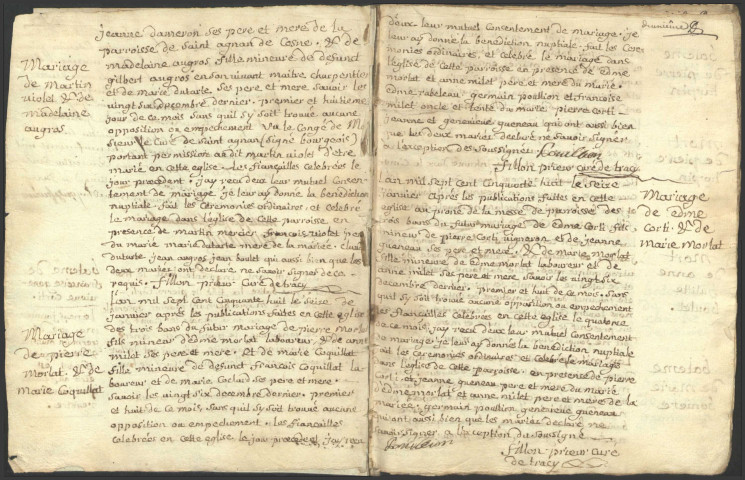 jeanne dameron ses pere et mere de la
parroisse de saint agnan de Cosne · & de
madelaine augros fille mineure de defunct
gilbert augros en son vivant maitre charpentier
et de marie dutarte ses pere et mere savoir les
vingt six decembre dernier · premier et huitieme
jour de ce mois sans quil sy soit trouvé aucune
opposition ou empechement vu le Congé de M
sieur le Curé de saint agnan (signé bourgeois)
portant permission audit martin violet d'etre
marié en cette eglise · les fiançailles celebrées le
jour precedent j'ay receu deux leur mutuel Consen-
tement de mariage je leur ay donné la benediction
nuptiale · fait les Ceremonies ordinaires et celebré
le mariage dans l'eglise de Cette parroisse en
presence de martin mercier, françois violet pere
du marié marie dutarte mere de la mariée · claude
dutarte jean augros jean boulet qui aussi bien que les
deux mariés ont declaré ne savoir signer de ce
requis · fillon prieur Curé de tracy
Mariage
de Martin
violet & de
madelaine
augros
lan mil sept cent Cinquante huit le seize de
janvier après les publications faites en cette eglise
des trois bans du futur mariage de pierre morlat
fils mineur d'edme morlat laboureur & de anne
milet ses pere et mere · Et de marie Coquillat
fille mineure de defunct françois Coquillat la
boureur et de marie ses pere et mere ·
savoir les vingt six decembre dernier · premier
et huit de ce mois, sans quil sy soit trouvé aucune
opposition ou empechement · les fiançailles
celebrées en cette eglise le jour precedent jay receu
Mariage
de pierre
Morlat · & de
Marie Coquillat
deux leur mutuel Consentement de mariage · je
leur ay donné la benediction nuptiale · fait les Cere
monies ordinaires et celebré le mariage dans
l'eglise de Cette parroisse en presence de edme
morlat et anne milet pere et mere du marié ·
edme rateleau germain poullion et francoise
milet oncle et tante du marié pierre corti
jeanne et genevieve queneau qui ont aussi bien
que les deux mariés declaré ne savoir signer
a l'exception des soussignés Poullion
fillon prieur curé de tracy
lan mil sept cent Cinquante huit le seize
janvier après les publications faites en cette
eglise au prone de la messe de parroisse des
trois bans du futur mariage de edme Corti fils
mineur de pierre Corti vigneron et de jeanne
queneau ses pere et mere · & de marie morlat
fille mineure de edme morlat laboureur et de
anne milet ses pere et mere, savoir les vingt six
decembre dernier · premier et huit de ce mois · sans
quil sy soit trouvé aucune opposition ou empechement
les fiançailles celebrées en cette eglise le quatorze
de ce mois · jay receu deux leur mutuel Consentement
de mariage · je leur ay donné la benediction nuptiale
fait les ceremonies ordinaires et celebré le mariage
dans l'eglise de Cette parroisse · en presence de pierre
Corti, et jeanne queneau pere et mere du marié
d'edme morlat et anne milet pere et mere de la
mariée · germain poullion genevieve queneau
qui ont aussi bien que les mariés declaré ne
savoir signer a l'exception du soussigné
Poullion
fillon prieur curé
de tracy
Mariage
de edme
Corti · & de
marie morlat